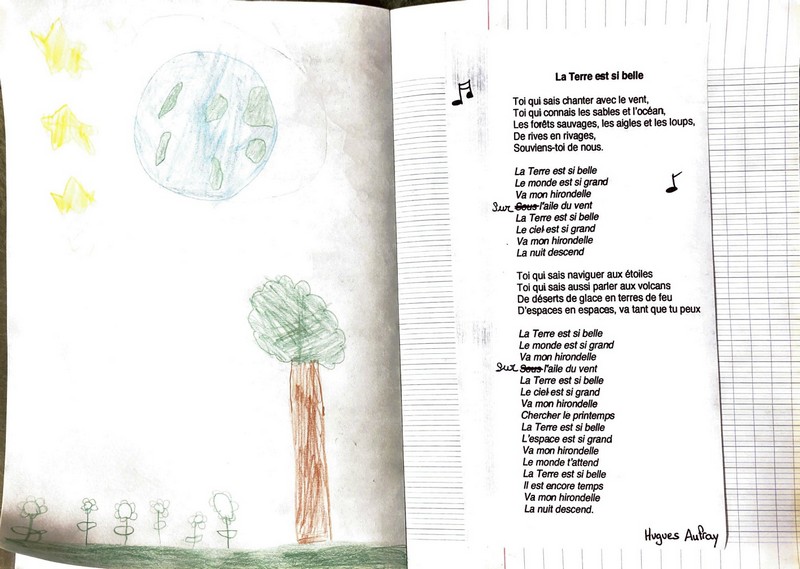 La Terre est si belle
Toi qui sais chanter avec le vent,
Toi qui connais les sables et l'océan,
Les forêts sauvages, les aigles et les loups,
De rives en rivages,
Souviens-toi de nous.
La Terre est si belle
Le monde est si grand
Va mon hirondelle
Sur Sous l'aile du vent
La Terre est si belle
Le ciel est si grand
Va mon hirondelle
La nuit descend
Toi qui sais naviguer aux étoiles
Toi qui sais aussi parler aux volcans
De déserts de glace en terres de feu
D'espaces en espaces, va tant que tu peux
La Terre est si belle
Le monde est si grand
Va mon hirondelle
Sur Sous l'aile du vent
La Terre est si belle
Le ciel est si grand
Va mon hirondelle
Chercher le printemps
La Terre est si belle
L'espace est si grand
Va mon hirondelle
Le monde t'attend
La Terre est si belle
Il est encore temps
Va mon hirondelle
La nuit descend.
Hugues Aufray